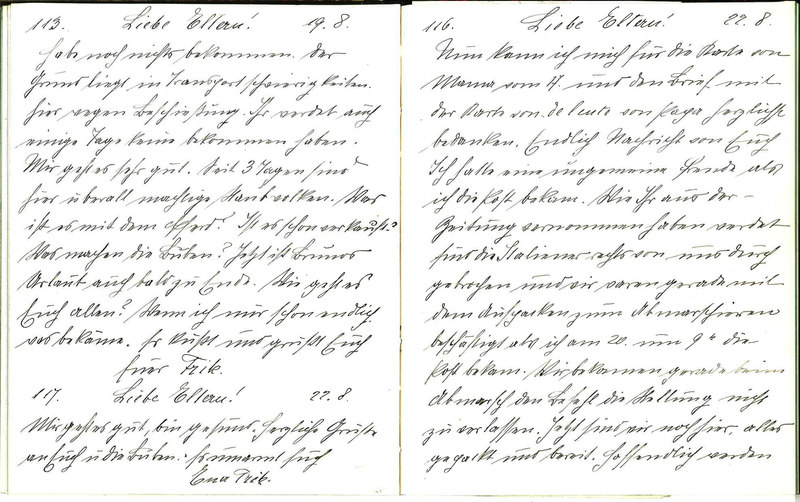 113. Liebe Eltern! 19.8.
Habe noch nichts bekommen. Der
Grund liegt in Transportschwierigkeiten.
hier wegen Beschießung. Ihr werdet auch
einige Tage keine bekommen haben.
Mir geht es sehr gut. Seit 3 Tagen sind
hier überall mächtige Staubwolken. Was
ist es mit dem Pferd? Ist es schon verkauft?
Was machen die Buben? Jetzt ist Brunos
Urlaub auch bald zu Ende. Wie geht es
Euch allen? Wenn ich nur schon endlich
was bekäme. Es küßt und grüßt Euch
Euer Fritz.
117. Liebe Eltern! 22.8.
Mir geht es gut, bin gesund. Herzliche Grüße
an Euch u die Buben. Es umarmt Euch
Euer Fritz.
116. Liebe Eltern! 22.8.
Nun kann ich mich für die Karte von
Mama vom 4. und den Brief mit
der Karte von von Papa herzlichst
bedanken. Endlich Nachricht von Euch
Ich hatte eine ungemeine Freude als
ich die Post bekam. Wie Ihr aus der
Zeitung vernommen haben werdet
sind die Italiener rechts von uns durch
gebrochen und wir waren gerade mit
dem Aufpacken zum Abmarschieren
beschäftigt als ich am 20. um 9 h die
Post bekam. Wir bekamen gerade beim
Abmarsch den Befehl die Stellung nicht
zu verlassen. Jetzt sind wir noch hier, alles
gepackt und bereit. Hoffendlich werden